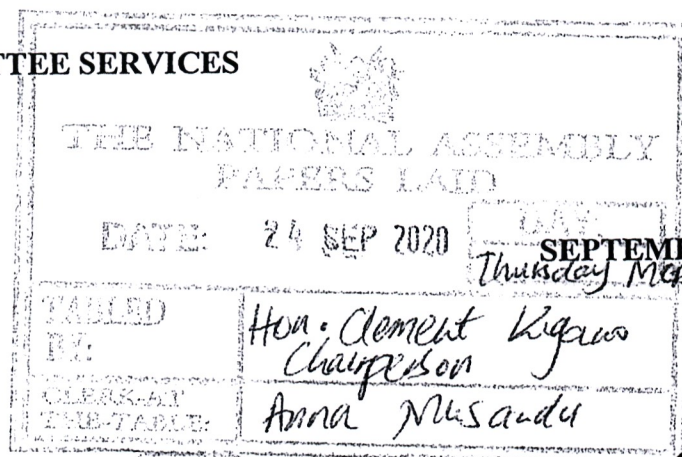 TTEE SERVICES
THE NATIONAL ASSEMBLY
PAPERS LAID
DATE: 24 SEP 2020 DAY:
SEPTEM
Thursday
TABLED BY: Hon. Clement Kigano
Chairperson
CLERK-AT THE-TABLE: Anna Musandu